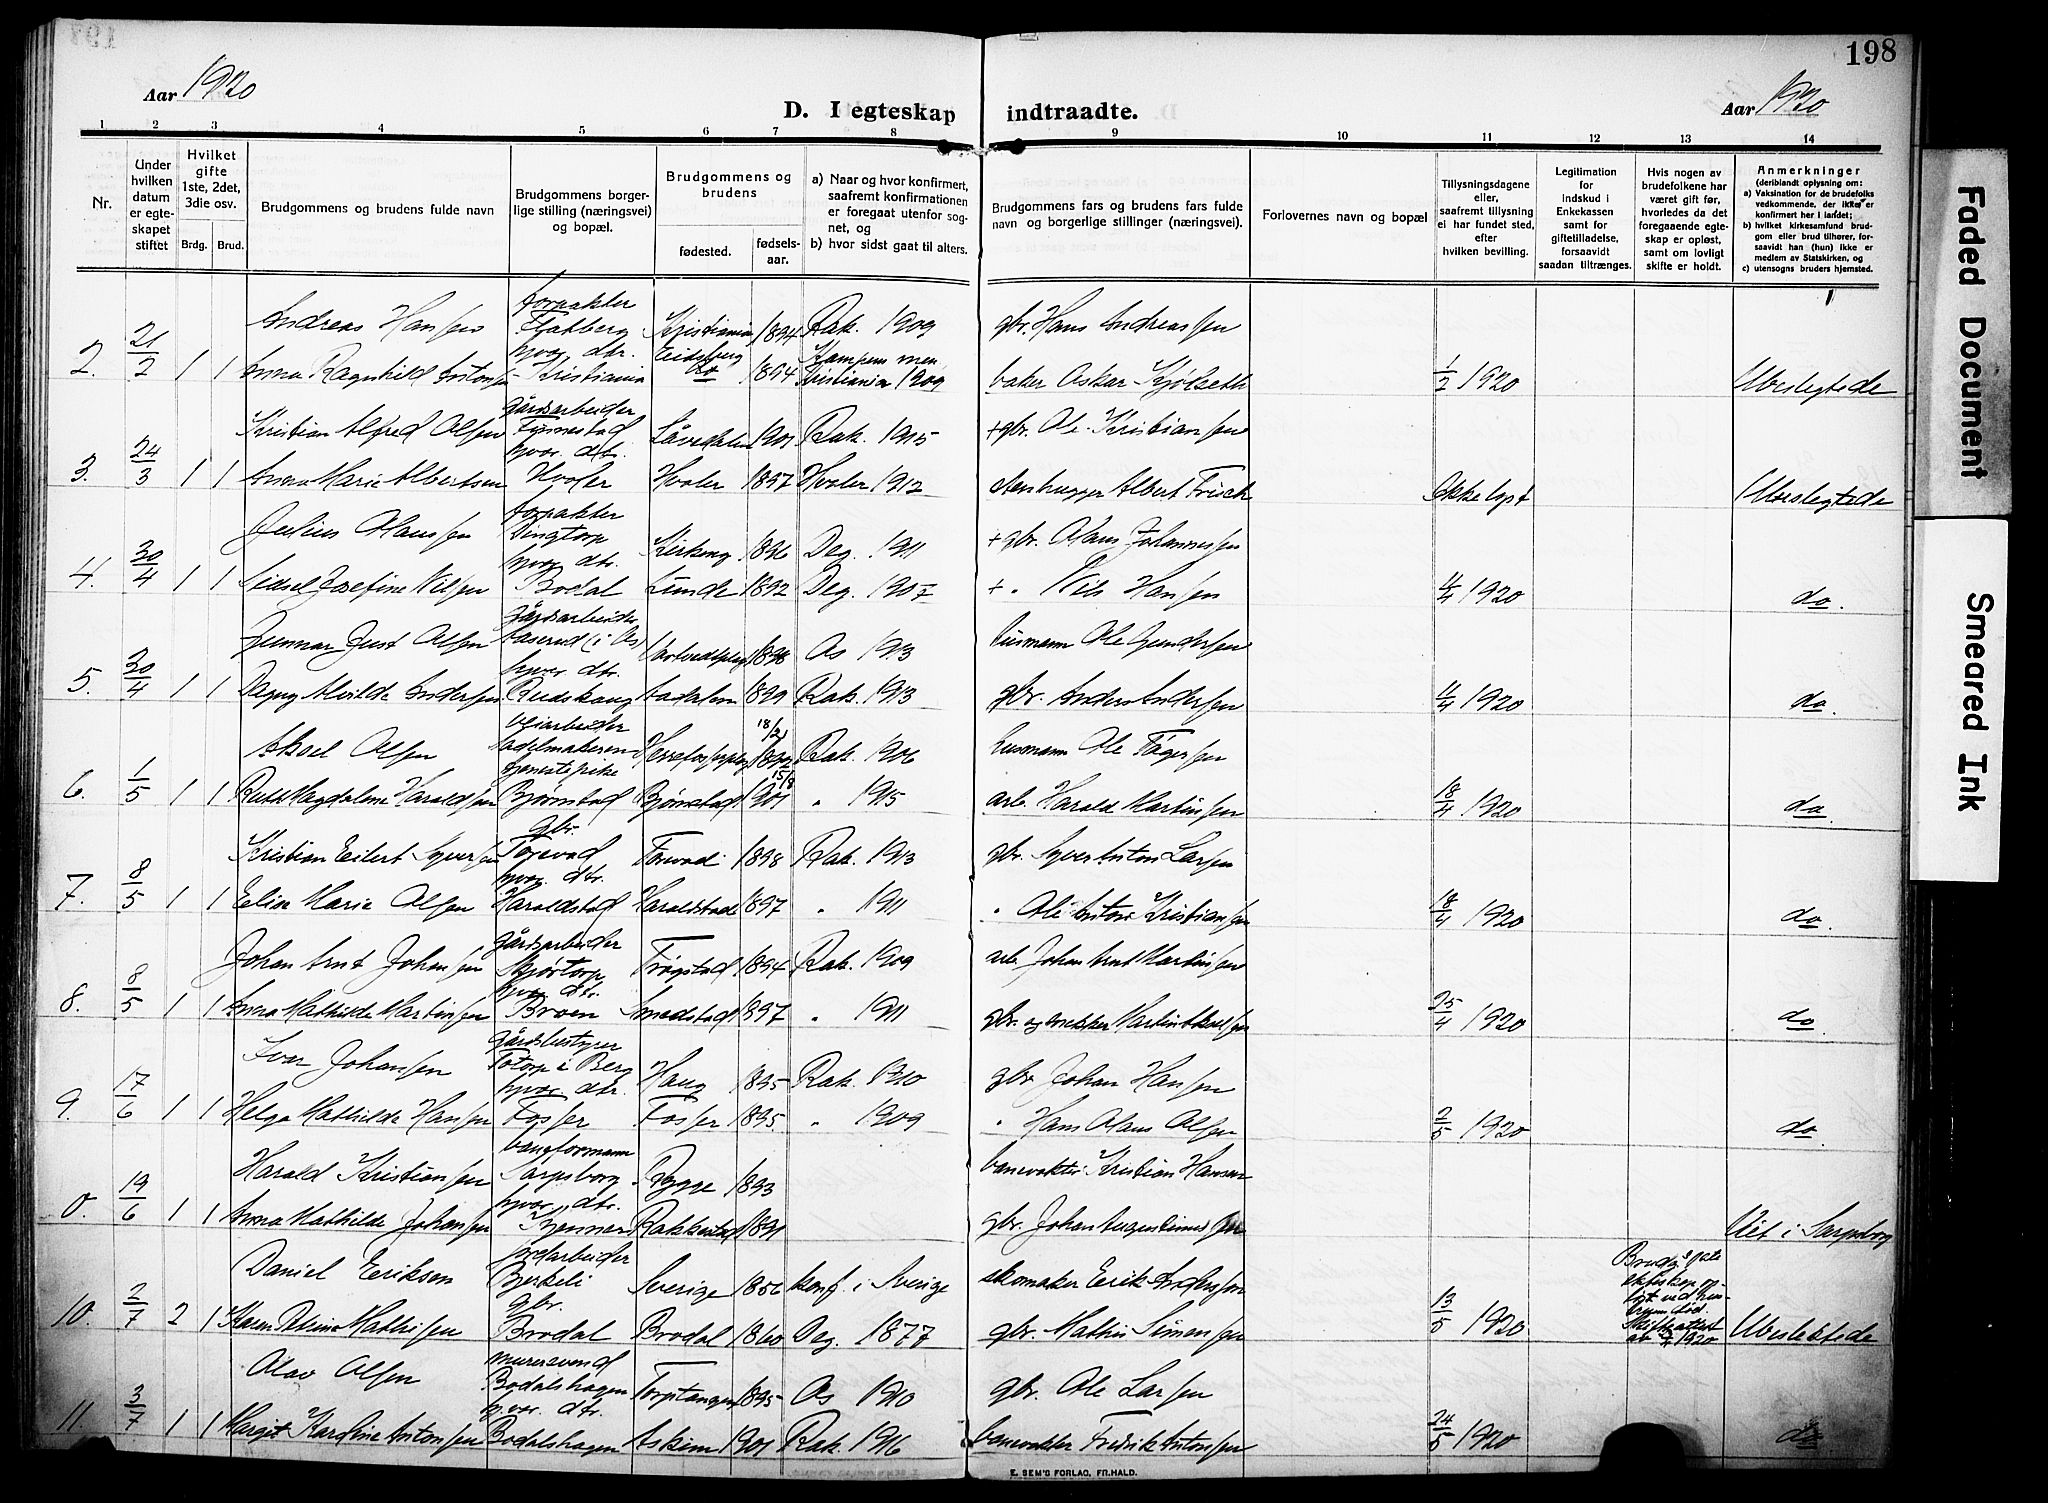 198
Aar 1920
D. I egteskap indtraadte.
Aar 1920
1 2 3 4 5 6 7 8 9 10 11 12 13 14
Nr.
Under hvilken datum er egteskapet stiftet
Hvilket gifte 1ste, 2det, 3die osv.
Brdg. Brud.
Brudgommens og brudens fulde navn
Brudgommens borgerlige stilling (næringsvei) og bopæl.
Brudgommens og brudens
fødested.
fødselsaar.
a) Naar og hvor konfirmert, saafremt konfirmationen er foregaat utenfor sognet, og
b) hvor sidst gaat til alters.
Brudgommens fars og brudens fars fulde navn og borgerlige stillinger (næringsvei).
Forlovernes navn og bopæl
Tillysningsdagene eller, saafremt tillysning ei har fundet sted, efter hvilken bevilling.
Legitimation for Indskud i Enkekassen samt for giftetilladelse, forsaavidt saadan tiltrænges.
Hvis nogen av brudefolkene har været gift før, hvorledes da det foregaaende egteskap er opløst, samt om lovligt skifte er holdt.
Anmerkninger
(deriblandt oplysning om:
a) Vaksination for de brudefolks vedkommende, der ikke er konfirmert her i landet;
b) hvilket kirkesamfund brudgom eller brud tilhører, forsaavidt han (hun) ikke er medlem av Statskirken, og
c) utensogns bruders hjemsted.
forpakter
Andreas Hansen Flatberg Kristiania 1894 Rak. 1909 gbr. Hans Andreassen
2. 21/2 1 1 Anna Ragnhild Antonsen gbr. dtr. Kristiania Eidsberg do 1894 Kampens men. Kristiania 1909 baker Oskar Kjölseth 1/2 1920 Ubeslegtede
gårdsarbeider
Kristian Alfred Olsen 1901 Rak. 1915 +gbr. Ole Kristiansen
3. 24/3 1 1 Anna Marie Albertsen hvor. dtr. Hvaler Hvaler 1897 Hvaler 1912 stenhugger Albert Frisch Ikke lyst Ubeslegtede
forpakter
Julius Hansen Kirkeng 1896 Deg. 1911 +gbr. Hans Johannessen
4. 30/4 1 1 Sidsel Josefine Nilsen gbr. dtr. Bodal Lunde 1892 Deg. 1907 + " Nils Hansen 11/4 1920 do.
gårdsarbeider
Gunnar Just Olsen (i Os) 1898 Os 1913 husmann Ole Gundersen
5. 30/4 1 1 Dagny Alvilde Andersen hvor dtr. Rudskaug 1899 Rak. 1913 gbr. Anders Andersen 11/4 1920 do.
veiarbeider 18/2
Aksel Olsen 1892 Rak. 1906 husmann Ole
6. 1/5 1 1 Ruth Magdalene Haraldsen tjenestepike Bjørnstad Bjønstad 15/8 1901 " 1915 arb. Harald Martinsen 18/4 1920 do.
gbr.
Kristian Eilert Syversen 1898 Rak. 1913 gbr. Syver Anton Larsen
7. 8/5 1 1 Elise Marie Olsen hvor. dtr. Haraldstad Haraldstad 1897 " 1911 " Ole Anton Kristiansen 18/4 1920 do.
gårdsarbeider
Johan Arnt Johansen Kjørtorp Trøgstad 1894 Rak. 1909 arb. Johan Arnt Martinsen
8. 8/5 1 1 Anna Mathilde Martinsen hvor. dtr. Broen Smedstad 1897 " 1911 25/4 1920 do.
gårdsbestyrer
Ivar Johansen i Berg Haug 1895 Rak. 1910 gbr Johan Hansen
9. 17/6 1 1 Helga Mathilde Hansen hvor. dtr. Fosser Fosser 1895 " 1909 " Hans Olaus Olsen 2/5 1920 do.
baneformann
Harald Kristiansen Sarpsborg Rygge 1893 banevokter Kristian Hansen
0. 19/6 1 1 Anna Mathilde Johansen hvor. dtr. Rakkestad 1891 gbr. Johan Augustinus Viet i Sarpsborg
jordarbeider
Daniel Erikson Bjerkeli Sverige 1856 konf. i Sverige skomaker Erik Anderson
10. 2/7 2 1 Karen Mathisen gbr. Brodal Brodal 1860 Deg. 1877 gbr. Mathis Simensen 13/5 1920 Brudg.s første ekteskap opløst ved hustruens død. Skifteattest av 1920 Ubeslektede
murersvend
Olav Olsen Bodalshagen Torptangen 1895 Os 1910 gbr. Ole Larsen
11. 3/7 1 1 Margit Karoline Antonsen hvor. dtr. Bodalshagen Askim 1901 Rak. 1916 banevokter Fredrik Antonsen 24/5 1920 do
E. SEM'S FORLAG, FR.HALD.
Faded Document
Smeared Ink